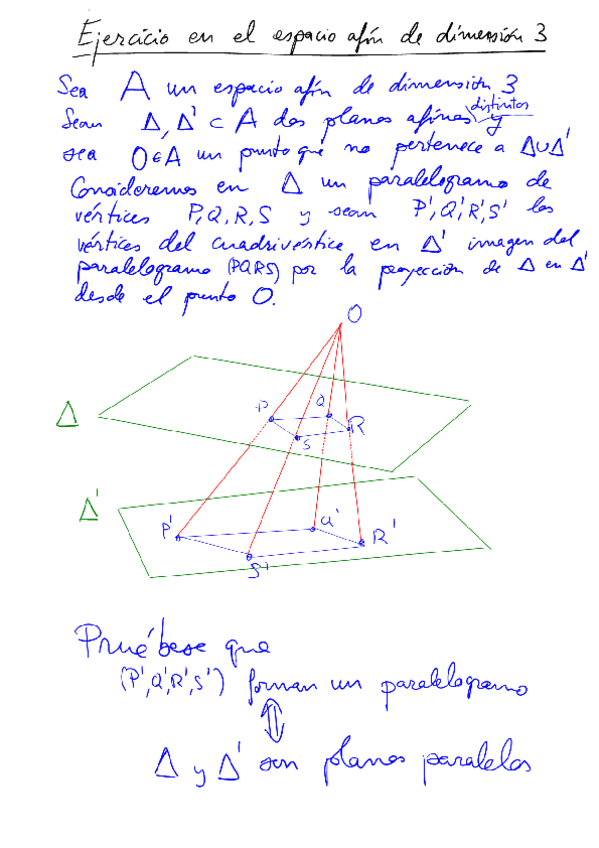 Ejercicio en el espacio afín de dimensión 3
Sea A un espacio afín de dimensión 3
Sean Δ, Δ' ⊂ A dos planos afines distintos y
sea O∈A un punto que no pertenece a Δ∪Δ'
Consideremos en Δ un paralelogramo de
vértices P,Q,R,S y sean P',Q',R',S' los
vértices del cuadrivértice en Δ' imagen del
paralelogramo (PQRS) por la proyección de Δ en Δ'
desde el punto O.
O
P
Q
R
S
Δ
Δ'
P'
Q'
R'
S'
Pruébese que
(P',Q',R',S') forman un paralelogramo
⇕
Δ y Δ' son planos paralelos